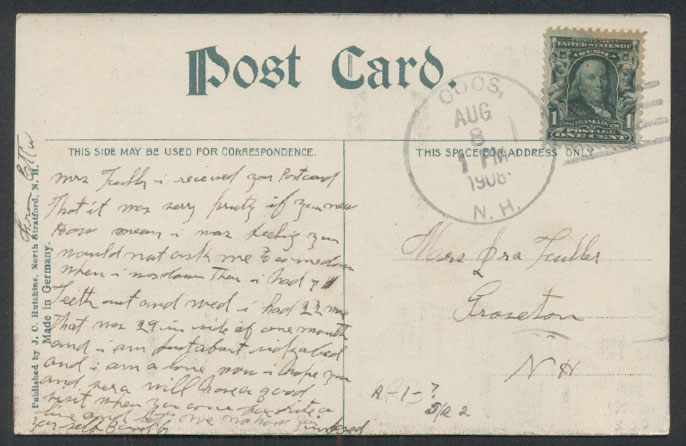 Post Card.
UNITED STATES OF AMERICA
1 1
FRANKLIN
POSTAGE
ONE CENT
COOS,
AUG
8
1 PM
1908
N. H.
THIS SIDE MAY BE USED FOR CORRESPONDENCE.
THIS SPACE FOR ADDRESS ONLY.
Published by J. C. Hutchins, North Stratford, N. H.
Made in Germany.
From
Mrs Fuller i received your Postcard
That it was very pretty if you new
How mean i was feeling you
would not ask me to come down
when i was down Then i had
Teeth out and wed i had 22 more
That was 29 in side of one month
and i am just about
and i am a lone now i hope you
and will have a good
visit when you come
line and let me no how you
your self
Mrs Ora Fuller
Groveton
NH
A-1-?
5/22